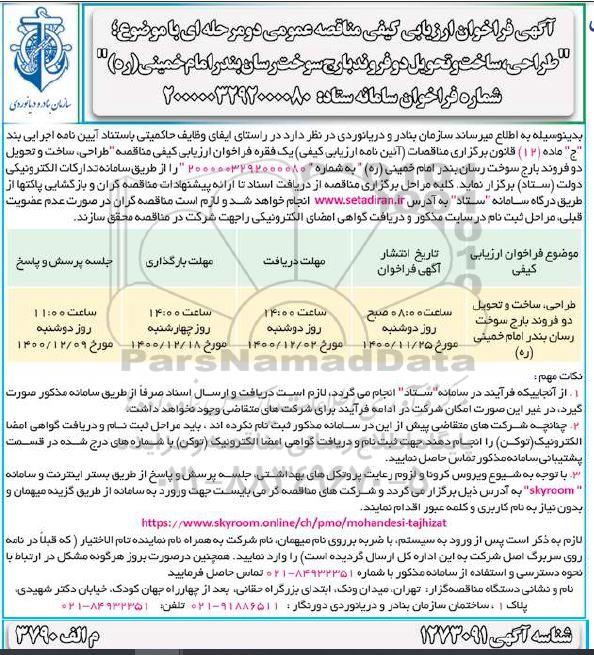 آگهی فراخوان ارزیابی کیفی مناقصه عمومی دو مرحله ای با موضوع؛
"طراحی، ساخت و تحویل دو فروند بارج سوخت رسان بندر امام خمینی (ره)"
شماره فراخوان سامانه ستاد: ۲۰۰۰۰۰۳۲۹۲۰۰۰۰۸۰
سازمان بنادر و دریانوردی
بدینوسیله به اطلاع میرساند سازمان بنادر و دریانوردی در نظر دارد در راستای ایفای وظایف حاکمیتی باستناد آیین نامه اجرایی بند
"ج" ماده (۱۲) قانون برگزاری مناقصات (آئین نامه ارزیابی کیفی) یک فقره فراخوان ارزیابی کیفی مناقصه "طراحی، ساخت و تحویل
دو فروند بارج سوخت رسان بندر امام خمینی (ره)" به شماره "۲۰۰۰۰۰۳۲۹۲۰۰۰۰۸۰" را از طریق سامانه تدارکات الکترونیکی
دولت (ستاد) برگزار نماید. کلیه مراحل برگزاری مناقصه از دریافت اسناد تا ارائه پیشنهادات مناقصه گران و بازگشایی پاکتها از
طریق درگاه سامانه "ستاد" به آدرس www.setadiran.ir انجام خواهد شد و لازم است مناقصه گران در صورت عدم عضویت
قبلی، مراحل ثبت نام در سایت مذکور و دریافت گواهی امضای الکترونیکی را جهت شرکت در مناقصه محقق سازند.
موضوع فراخوان ارزیابی کیفی
تاریخ انتشار آگهی فراخوان
مهلت دریافت
مهلت بارگذاری
جلسه پرسش و پاسخ
طراحی، ساخت و تحویل دو فروند بارج سوخت رسان بندر امام خمینی (ره)
ساعت ۰۸:۰۰ صبح روز دوشنبه مورخ ۱۴۰۰/۱۱/۲۵
ساعت ۱۴:۰۰ روز دوشنبه مورخ ۱۴۰۰/۱۲/۰۲
ساعت ۱۴:۰۰ روز چهارشنبه مورخ ۱۴۰۰/۱۲/۱۸
ساعت ۱۱:۰۰ روز دوشنبه مورخ ۱۴۰۰/۱۲/۰۹
ParsNamadData
۰۲۱-۸۸۳۴۹۶۷۰-۵
نکات مهم:
۱. از آنجاییکه فرآیند در سامانه "ستاد" انجام می گردد، لازم است دریافت و ارسال اسناد صرفاً از طریق سامانه مذکور صورت
گیرد، در غیر این صورت امکان شرکت در ادامه فرآیند برای شرکت های متقاضی وجود نخواهد داشت.
۲. چنانچه شرکت های متقاضی پیش از این در سامانه مذکور ثبت نام نکرده اند، باید مراحل ثبت نام و دریافت گواهی امضا
الکترونیک(توکن) را انجام دهند جهت ثبت نام و دریافت گواهی امضا الکترونیک (توکن) با شماره های درج شده در قسمت
پشتیبانی سامانه مذکور تماس حاصل نمایید.
۳. با توجه به شیوع ویروس کرونا و لزوم رعایت پروتکل های بهداشتی، جلسه پرسش و پاسخ از طریق بستر اینترنت و سامانه
"skyroom" به آدرس ذیل برگزار می گردد و شرکت های مناقصه گر می بایست جهت ورود به سامانه از طریق گزینه میهمان و
بدون نیاز به نام کاربری و کلمه عبور اقدام نمایند.
https://www.skyroom.online/ch/pmo/mohandesi-tajhizat
لازم به ذکر است پس از ورود به سیستم، با ضربه بر روی نام میهمان، نام شرکت به همراه نام نماینده تام الاختیار (که قبلاً در نامه
روی سربرگ اصل شرکت به این اداره کل ارسال گردیده است) را وارد نمایید. همچنین درصورت بروز هرگونه مشکل در ارتباط با
نحوه دسترسی و استفاده از سامانه مذکور با شماره ۸۴۹۳۲۳۵۱-۰۲۱ تماس حاصل فرمایید
نام و نشانی دستگاه مناقصه گزار: تهران، میدان ونک، ابتدای بزرگراه حقانی، بعد از چهارراه جهان کودک، خیابان دکتر شهیدی،
پلاک ۱، ساختمان سازمان بنادر و دریانوردی دورنگار: ۹۱۸۸۶۵۱۱-۰۲۱ تلفن: ۸۴۹۳۲۳۵۱-۰۲۱
شناسه آگهی ۱۲۷۳۰۹۱
م الف ۳۷۹۰